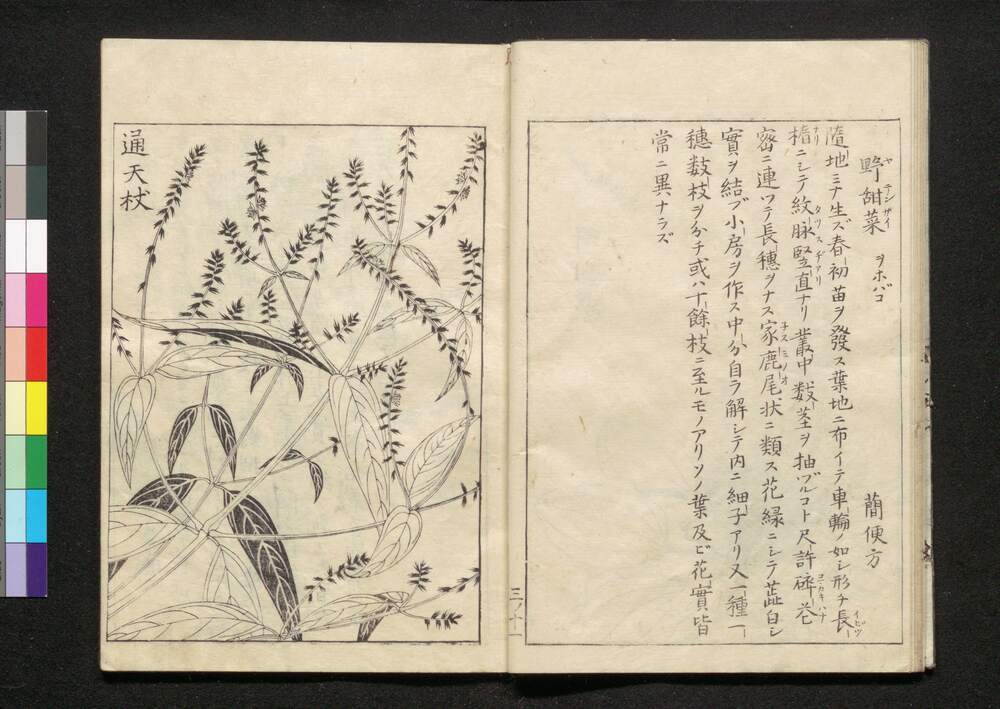 野甜菜 ヲホバコ 簡便方
ヤ テンサイ
隨地ミナ生ズ春初苗ヲ發ス葉地ニ布イテ車輪ノ如シ形チ長
イビツ
楕ニシテ紋脉竪直ナリ叢中数莖ヲ抽ヅルコト尺許碎花
ナリ タツスヂアリ コカキハナ
宻ニ連ツテ長穗ヲナス家鹿尾状ニ類ス花緑ニシテ蕋白シ
子スミノオ
實ヲ結ブ小房ヲ作ス中分自ラ解シテ内ニ細子アリ又一種一
穗数枝ヲ分チ或ハ十餘枝ニ至ルモノアリソノ葉及ビ花實皆
常ニ異ナラズ
通天杖
三ノ十一